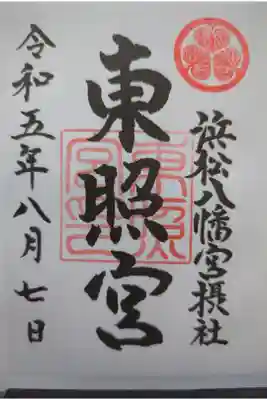 浜松八幡宮摂社
東照宮
令和五年八月七日